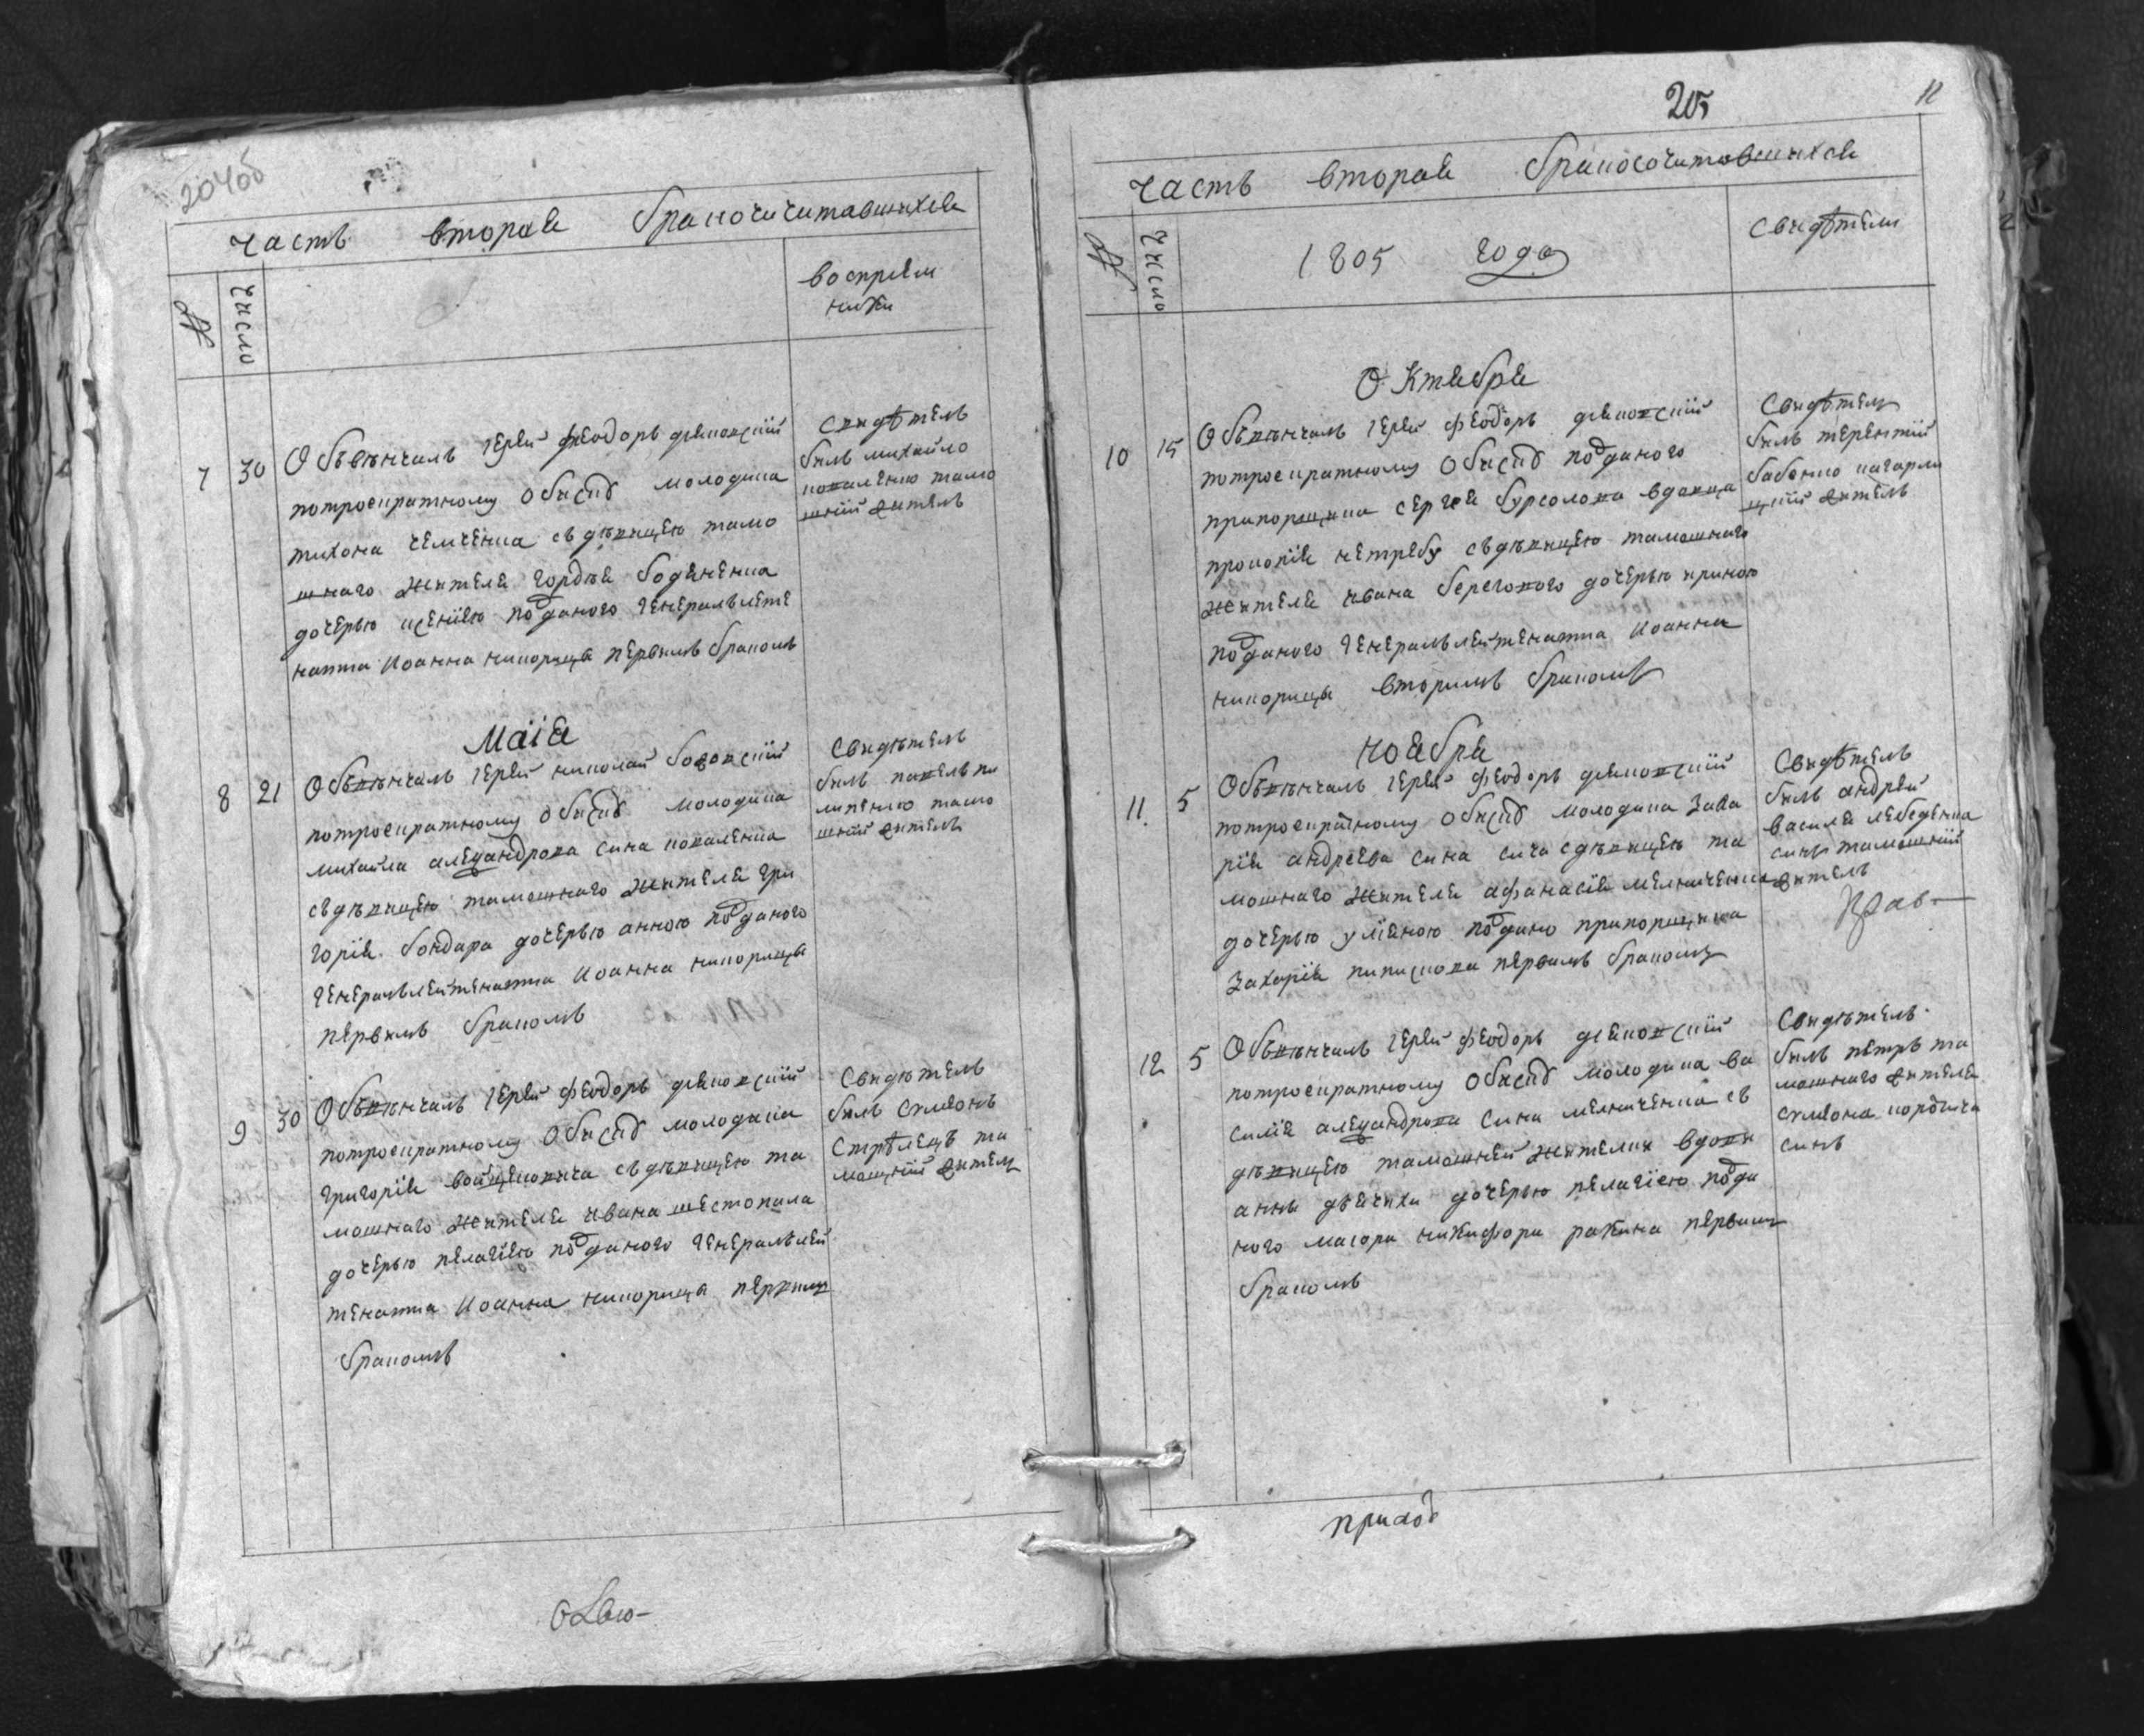 204об
часть вторая бракочитавшихся
№
число
воспрiем
ники
7 30 Обвѣнчалъ iерей феодоръ дяковскiй
потроекратному обиску молодика
тихона чемченка съ дѣвицею тамо
шнаго жителя гордѣя бодяненка
дочерью ксенiею подданого генералълейте
нанта иоанна никорица первимъ бракомъ
свидѣтель
билъ михайло
коваленко тамо
шнiй житель
маiя
8 21 Обвѣнчалъ iерей николай
потроекратному обиску молодика
михайла александрова сина коваленка
съ дѣвицею тамошнаго жителя гри
горiя бондара дочерью анною подданого
генералълейтенанта иоанна никорица
первимъ бракомъ
свидѣтель
билъ павелъ пи
липенко тамо
шнiй житель
9 30 Обвѣнчалъ iерей феодоръ дяковскiй
потроекратному обиску молодика
григорiя съ дѣвицею та
мошнаго жителя ивана шестопала
дочерью пелагiею подданого генералълей
тенанта иоанна никорица первимъ
бракомъ
свидѣтель
билъ сумеонъ
стрѣлецъ та
мошнiй житель
205
11
часть вторая бракосочитавшихся
№
число
1805 года
свидѣтели
октября
10 15 Обвѣнчалъ iерей феодоръ дяковскiй
потроекратному обиску подданого
прапорщика сергея бурсолова вдовца
прокопiя нетребу съ дѣвицею тамошнаго
жителя ивана берегового дочерью
подданого генералълейтенанта иоанна
никорица вторимъ бракомъ
свидѣтель
билъ терентiй
бабенко
житель
ноября
11 5 Обвѣнчалъ iерей феодоръ дяковскiй
потроекратному обиску молодика заха
рiя андреева сина сича съ дѣвицею та
мошнаго жителя афанасiя мелниченка
дочерью улiяною подданого прапорщика
захарiя первимъ бракомъ
свидѣтель
билъ андрей
василя лебеденка
синъ тамошнiй
житель
12 5 Обвѣнчалъ iерей феодоръ дяковскiй
потроекратному обиску молодика ва
силiя александрова сина мелниченка съ
дѣвицею тамошней жителки вдови
анни дячихи дочерью пелагiею подда
ного маiора никифора ракина первимъ
бракомъ
свидѣтель
билъ петръ та
мошнаго жителя
сумеона
синъ
приход